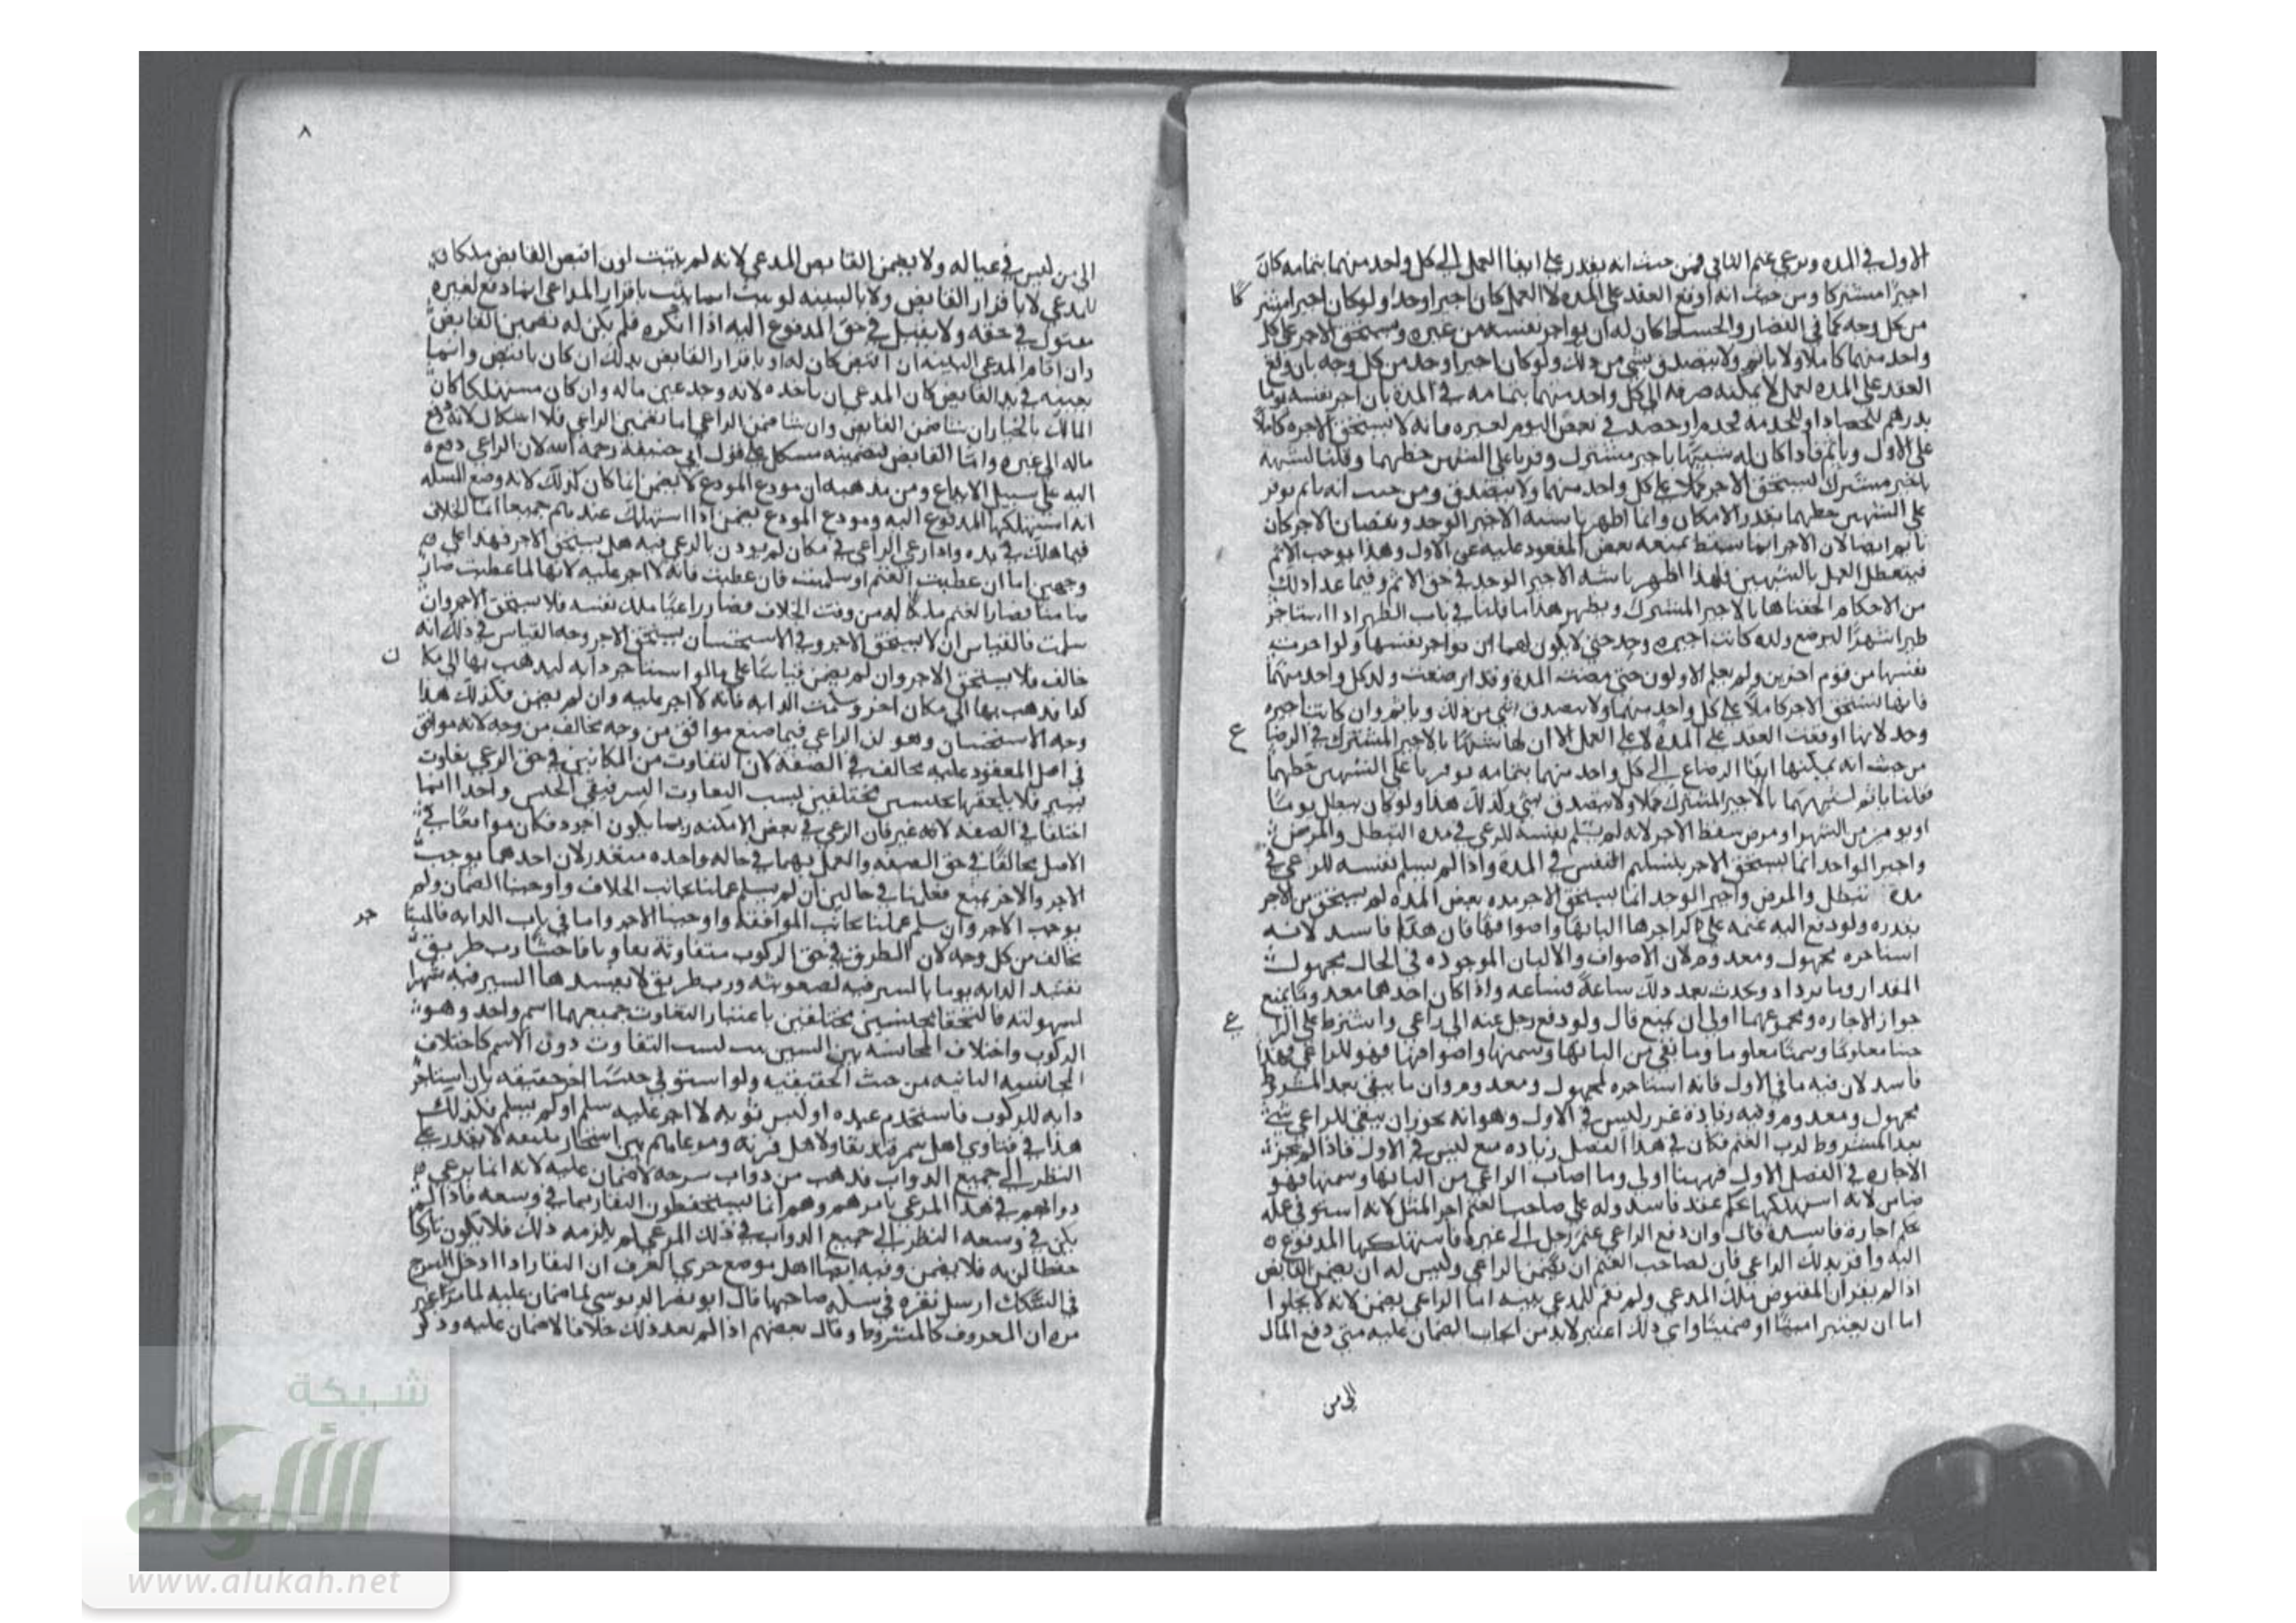 الاول في المده ويرعي غنم الثاني فمن حيث انه يقدر على ايفا العمل الى كل واحد منهما بتمامه كان
اجيرا مشتركا ومن حيث انه اوقع العقد على المده لا العمل كان اجيرا وحدا ولو كان اجيرا مشتر كا
من كل وجه كما في القصار والخياط كان له ان يواجر نفسه من غيره ويستحق الاجر على كل
واحد منهما كاملا ولا ياثم ولا يتصدق بشي من ذلك ولو كان اجيرا وحد من كل وجه بان وقع
العقد على المده لعمل لا يمكنه صرفه الى كل واحد منهما بتمامه في المدة بان اجر نفسه يوما
بدرهم للحصاد او للخدمه فخدم او حصد في بعض اليوم لغيره فانه لا يستحق الاجره كاملا
على الاول وياثم فاذا كان له شبها باجير مشترك وفرنا على الشبهين حظهما وقلنا لشبهه
باجير مشترك يستحق الاجر كاملا على كل واحد منهما ولا يتصدق ومن حيث انه ياثم يوفر
على الشبهين حظهما بقدر الامكان وانما اظهرنا شبه الاجير الوحد ونقصان الاجر كان
ياثم ايضا لان الاجر انما سقط بمنعه بعض المعقود عليه عن الاول وهذا يوجب الاثم
فيتعطل العمل بالشبهين فلهذا اظهرنا شبه الاجير الوحد في حق الاثم وفيما عدا ذلك
من الاحكام الحقناها بالاجير المشترك ويظهر هذا ما قلنا في باب الظئر اذا استاجر
ظيرا شهرا لترضع ولده كانت اجيره وحد حتى لا يكون لها ان تواجر نفسها ولو اجرت
نفسها من قوم اخرين ولم يعلم الاولون حتى مضت المدة وقد ارضعت ولد كل واحد منهما
فانها تستحق الاجر كاملا على كل واحد منهما ولا تتصدق بشي من ذلك وياثم وان كانت اجيره
وحد لانها اوقعت العقد على المدة لا على العمل الا ان لها شبها بالاجير المشترك في الرضا ع
من حيث انه يمكنها ايفا الرضاع الى كل واحد منهما بتمامه يوفر نا على الشبهين حظهما
فقلنا ياثم لشبههما بالاجير المشترك ولا تتصدق بشي وكذلك هذا ولو كان يبطل يوما
او يومين من الشهر او مرض سقط الاجر لانه لم يسلم نفسه للرعي في مدة التبطل والمرض
واجير الواحد انما يستحق الاجر بتسليم النفس في المدة واذا لم يسلم نفسه للرعي في
مدة تبطل والمرض واجير الوحد انما يستحق الاجر مده بعض المده لم يستحق من الاجر
بقدره ولو دفع اليه غنمه على ان اجرها البانها واصوافها فان هذا فاسد لانه
استاجره بمجهول ومعدوم لان الاصواف والالبان الموجوده في الحال مجهولة
المقدار وما يزداد ويحدث بعد ذلك ساعة فساعه واذا كان احدهما معدوما يمنع
جواز الاجاره ومجموعهما اولى ان يمنع قال ولو دفع رجل غنمه الى راعي واشترط على الرا عي
جبنا معلوما وسمنا معلوما وما بقي من البانها وسمنها واصوافها فهو للراعي فهذا
فاسد لان فيه ما في الاول فانه استاجره لمجهول ومعدوم وان ما يبقى بعد المشروط
مجهول ومعدوم وفيه زيادة غرر ليس في الاول وهو انه يجوز ان يبقى للراعي شي
بعد المشروط لرب الغنم فكان في هذا الفصل زياده منع ليس في الاول فاذا لم يجز
الاجاره في الفصل الاول فههنا اولى وما اصاب الراعي من البانها وسمنها فهو
ضامن لانه استهلكها بحكم عقد فاسد وله على صاحب الغنم اجر المثل لانه استوفى عمله
بحكم اجارة فاسدة قال وان دفع الراعي غنم رجل الى غيره فاستهلكها المدفوع
اليه واقر بذلك الراعي فان لصاحب الغنم ان يضمن الراعي وليس له ان يضمن القابض
اذا لم يقر ان المقبوض ملك المدعي ولم تقم للمدعي بينه اما الراعي يضمن لانه لا يخلوا
اما ان يعتبر امينا او ضمينا واي ذلك اعتبر لا بد من ايجاب الضمان عليه متى دفع المال
الى من
٨
الى من ليس في عياله ولا يضمن القابض المدعي لانه لم يثبت لون اقبض القابض ملكان
للمدعي لا باقرار القابض ولا بالبينه لو ثبت انما يثبت باقرار الراعي انما دفع لغيره
مقبول في حقه ولا يقبل في حق المدفوع اليه اذا انكره فلم يكن له تضمين القابض
وان اقام المدعي البينه ان اقبض كان له او باقرار القابض بذلك ان كان ما اقبض قائما
بعينه في يد القابض كان للمدعي ان ياخذه لانه وجد عين ماله وان كان مستهلكا كان
المالك بالخيار ان شا ضمن القابض وان شا ضمن الراعي اما تضمين الراعي فلا اشكال لانه دفع
ماله الى غيره واما القابض فتضمينه مشكل على قول ابي حنيفه رحمه الله لان الراعي دفعه
اليه على سبيل الايداع ومن مذهبه ان مودع المودع لا يضمن انما كان كذلك لانه وضع المسله
انه استهلكها المدفوع اليه ومودع المودع يضمن اذا استهلك عندهم جميعا انما الخلاف
فيما هلك في يده واذا رعي الراعي في مكان لم يوذن بالرعي فيه هل يستحق الاجر فهذا على
وجهين اما ان عطبت الغنم او سلمت فان عطبت فانه لا اجر عليه لانها لما عطبت صار
ضامنا فصار الغنم ملكا له من وقت الخلاف فصار راعيا ملك نفسه فلا يستحق الاجر وان
سلمت فالقياس ان لا يستحق الاجر وفي الاستحسان يستحق الاجر وجه القياس في ذلك انه
خالف فلا يستحق الاجر وان لم يضمن قياسا على ما لو استاجر دابه ليذهب بها الى مكا ن
كذا فذهب بها الى مكان اخر وسلمت الدابه فانه لا اجر عليه وان لم يضمن فكذلك هذا
وجه الاستحسان وهو ان الراعي فيما صنع موافق من وجه مخالف من وجه لانه موافق
في اصل المعقود عليه مخالف في الصفه لان التفاوت من المكانين في حق الرعي تفاوت
يسير فلا يلحقها بجنسين مختلفين بسبب التفاوت اليسير فبقي الجنس واحدا انما
اختلفا في الصفه لا غير فان الرعي في بعض الامكنه ربما يكون اجود فكان موافقا في
الاصل مخالفا في حق الصفه والعمل بهما في حاله واحده متعذر لان احدهما يوجب
الاجر والاخر يمنع فعلمنا في حالين ان لم يسلم عملنا بجانب الخلاف واوجبنا الضمان ولم
يوجب الاجر وان سلم عملنا بجانب الموافقة واوجبنا الاجر واما في باب الدابه فالمستا جر
مخالف من كل وجه لان الطرق في حق الركوب متفاوتة تفاوتا فاحشا رب طريق
تفسد الدابه يوما بالسير فيه لصعوبته ورب طريق لا يفسدها السير فيه شهرا
لسهولته فالتحقا بجنسين مختلفين باعتبار التفاوت جميعهما اسم واحد وهو
الركوب واختلاف المجانسه بين الشيين يثبت التفاوت دون الاسم كاختلاف
المجانسه الثابته من حيث الحقيقيه ولو استوفى جنسا اخر حقيقه بان استاجر
دابه للركوب فاستخدم عبده او لبس ثوبه لا اجر عليه سلم او لم يسلم فكذلك
هذا في فتاوي اهل سمرقند بقار لاهل قريه
النظر الى جميع الدواب فذهب من دواب سرحه لا ضمان عليه لانه انما يرعي
دوابهم في هذا المرعي بامرهم وهم انما يستحفظون البقار بما في وسعه فاذا لم
يكن في وسعه النظر الى جميع الدواب في ذلك المرعي لم يلزمه ذلك فلا يكون تاركا
حفظا لزمه فلا يضمن وفيه ايضا اهل موضع جرى العرف ان البقار اذا ادخل السرح
في السكك ارسل بقره في سكه صاحبها قال ابو نصر الدبوسي لا ضمان عليه لما مر غير
مره ان المعروف كالمشروط وقال بعضهم اذا لم يعد ذلك خلافا لا ضمان عليه وذكر
شبكة
الألوكة
www.alukah.net